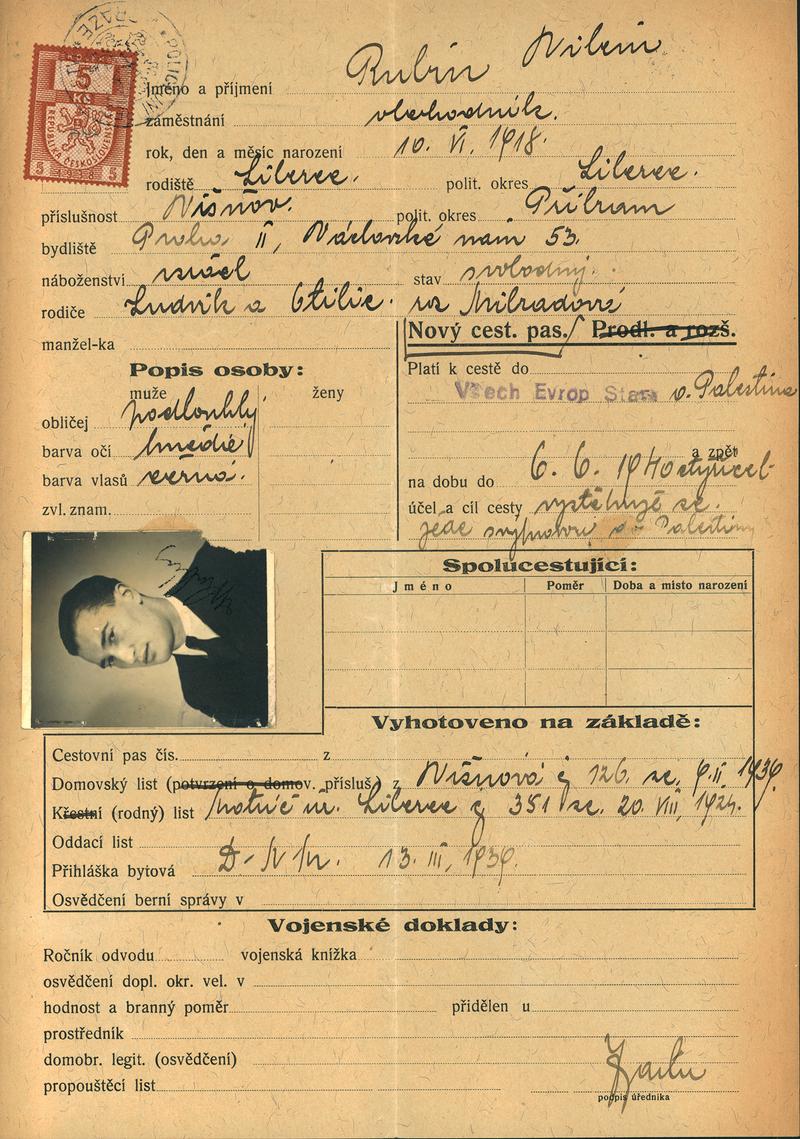 5 Kč
REPUBLIKA ČESKOSLOVENSKÁ
5 1938 5
Jméno a příjmení Rubín Vilém
zaměstnání obchodník.
rok, den a měsíc narození 10. VI. 1918.
rodiště Liberec. polit. okres Liberec.
příslušnost Višňov. polit. okres Příbram
bydliště Praha II, Václavské nám 53.
náboženství israel stav svobodný.
rodiče Ludvík a Otilie roz
manžel-ka
Nový cest. pas. / Prodl. a rozš.
Popis osoby:
muže ženy
obličej podlouhlý
barva očí hnědé
barva vlasů černá.
zvl. znam.
Platí k cestě do
Všech Evrop Států a Palestina
a zpět
na dobu do 6. 6. 1940
účel a cíl cesty vystěhuje se.
jede do Palestiny
Spolucestující:
Jméno Poměr Doba a místo narození
Vyhotoveno na základě:
Cestovní pas čís. z
Domovský list (potvrzení o domov. přísluš.) z Višňová č 126. ze. 9. II 1939.
Křestní (rodný) list Liberec č 351 ze. 20. VIII, 1924.
Oddací list
Přihláška bytová 13. III, 1939.
Osvědčení berní správy v
Vojenské doklady:
Ročník odvodu vojenská knížka
osvědčení dopl. okr. vel. v
hodnost a branný poměr přidělen u
prostředník
domobr. legit. (osvědčení)
propouštěcí list
podpis úředníka